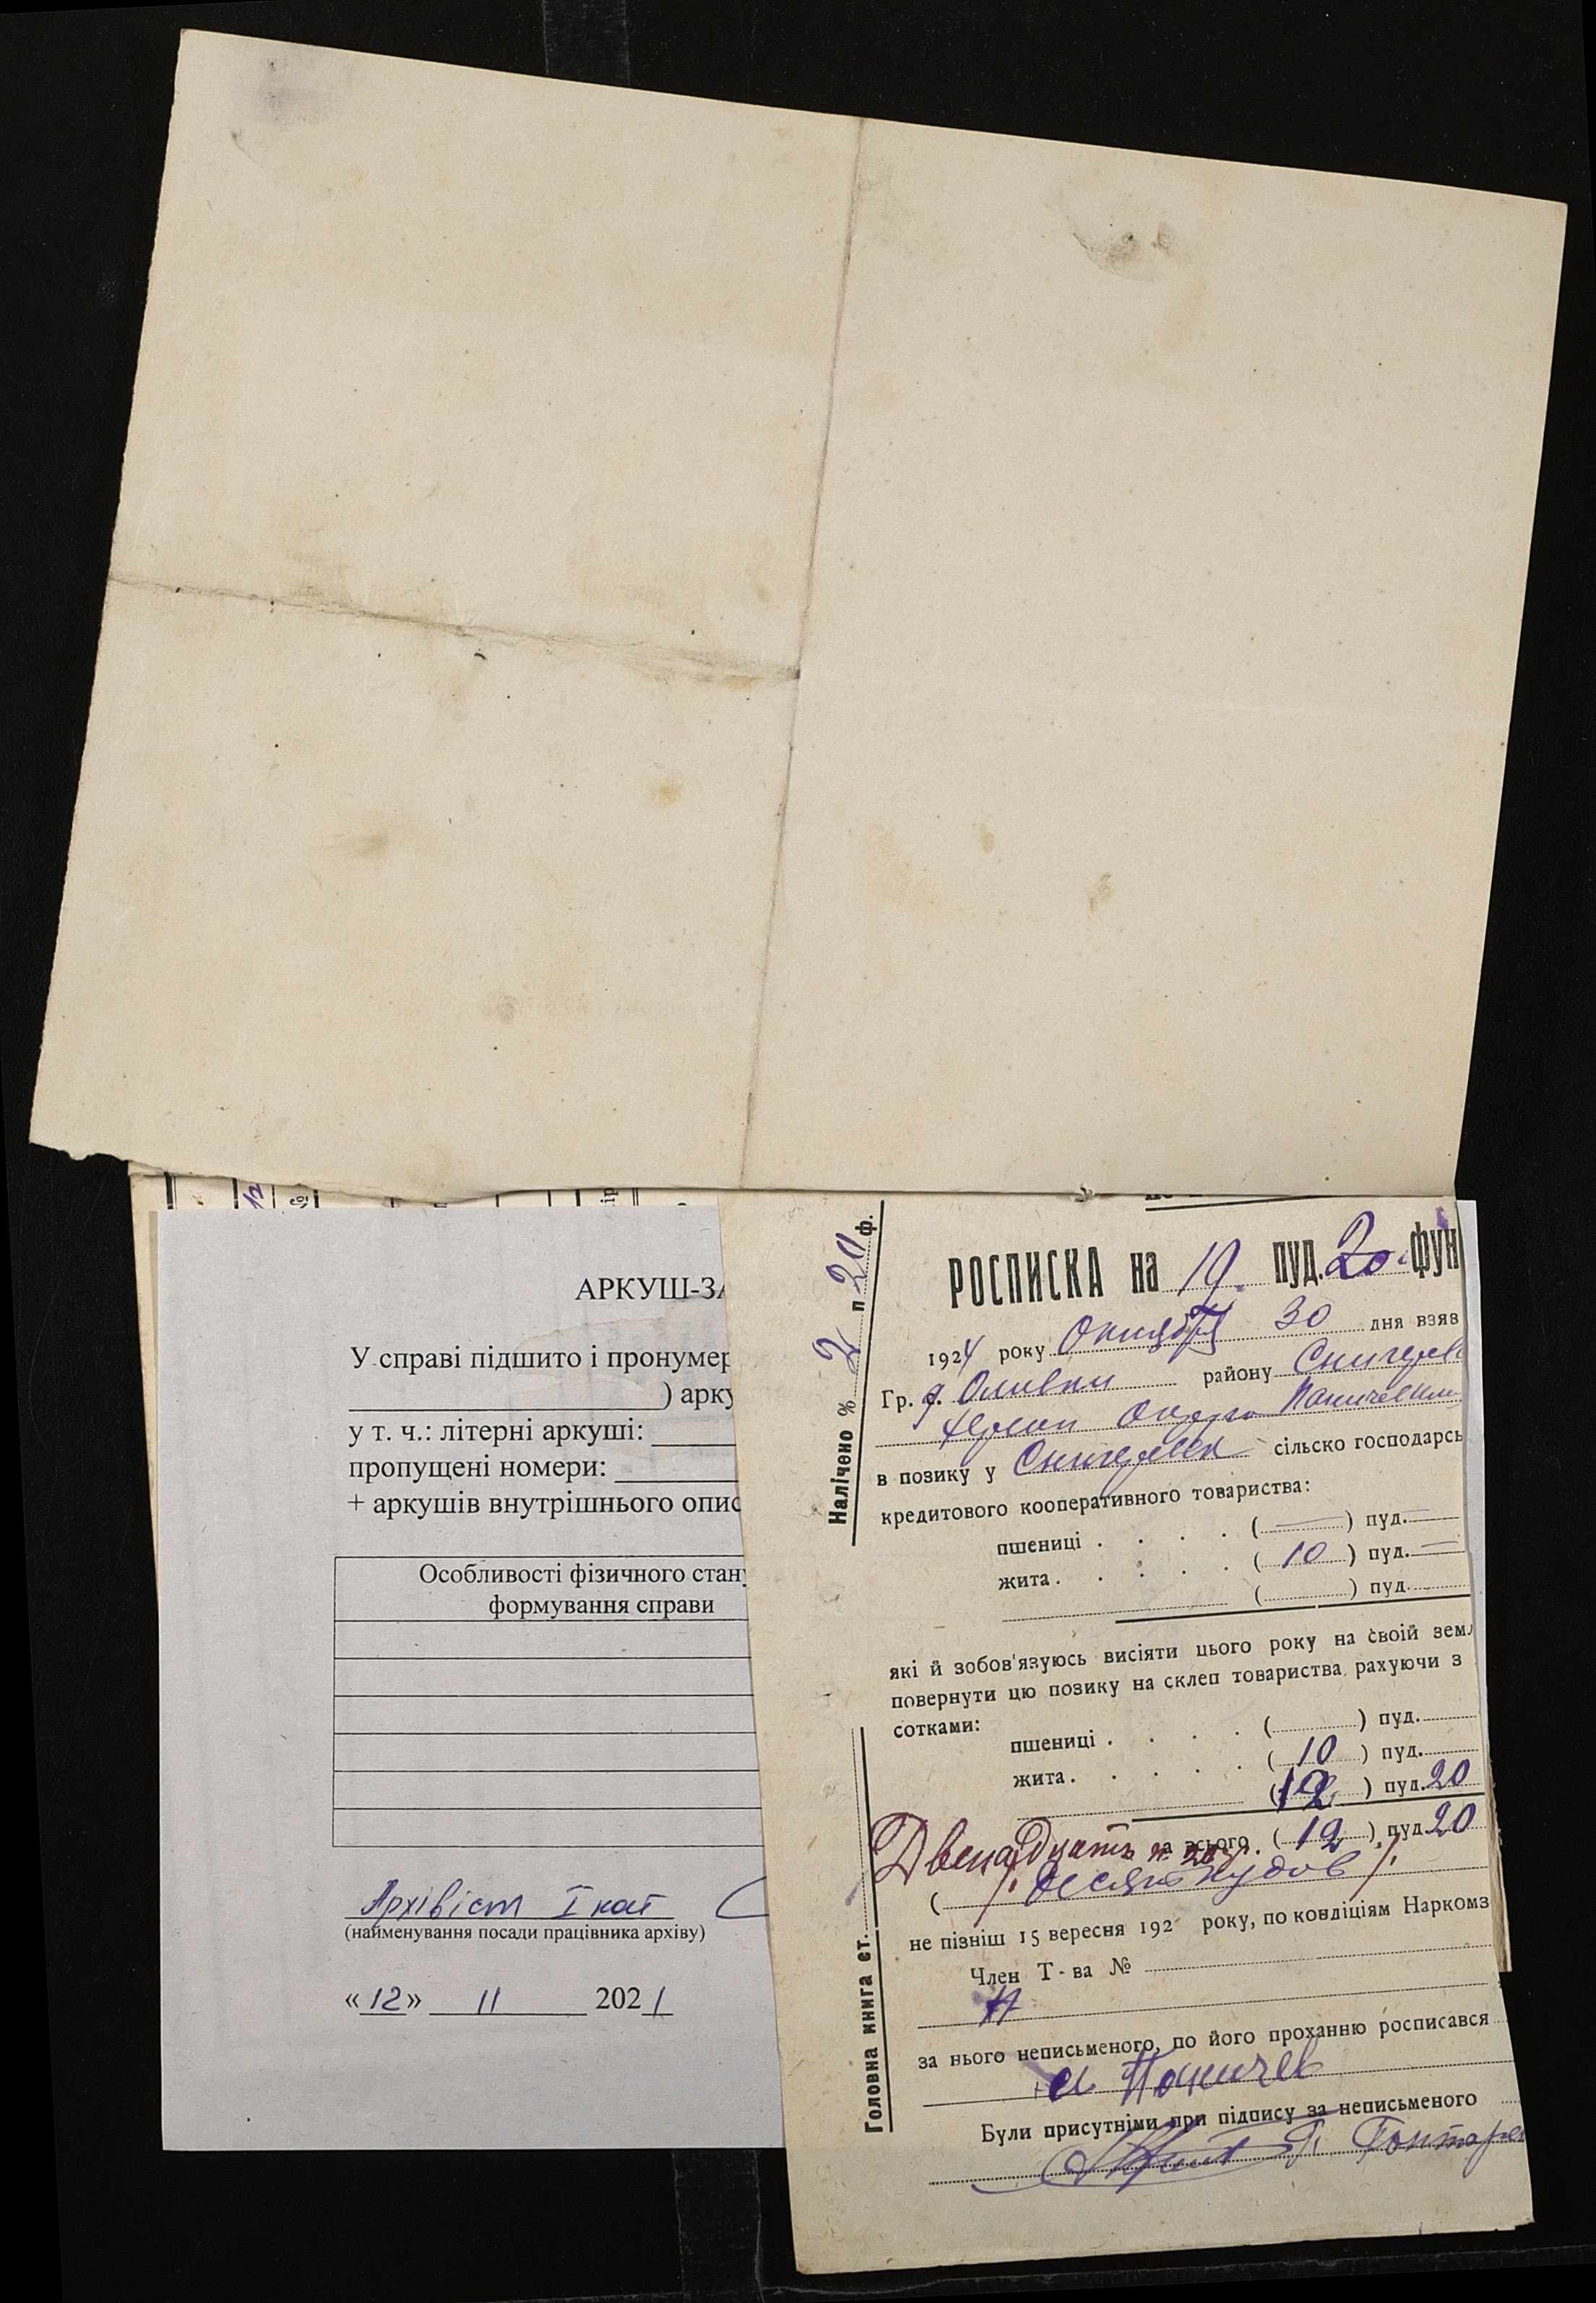 АРКУШ-ЗА
У справі підшито і пронумер
) арку
у т. ч.: літерні аркуші:
пропущені номери:
+ аркушів внутрішнього опис
Особливості фізичного стану
формування справи
Архівіст I кат
(найменування посади працівника архіву)
«12» 11 2021
Налічено % 2 п 20 ф.
Головна книга ст.
РОСПИСКА на 12 пуд. 20 фун
1924 року Октября 30 дня взяв
Гр. д. району Снигурев
Херсон Округа
в позику у сільско господарсь
кредитового кооперативного товариства:
пшениці . . . . ( — ) пуд. —
жита . . . . . ( 10 ) пуд. —
( ) пуд.
які й зобов'язуюсь висіяти цього року на своій земл
повернути цю позику на склеп товариства, рахуючи з
сотками:
пшениці . . . . ( ) пуд.
жита . . . . . ( 10 ) пуд.
( 12 ) пуд. 20
а всього . ( 12 ) пуд 20
Двенадцать п. 20 ф.
( Десять пудов
не пізніш 15 вересня 192 року, по кондіціям Наркомз
Член Т-ва №
за нього неписьменого, по його проханню росписався
Паничев
Були присутніми при підпису за неписьменого
Гонтаре